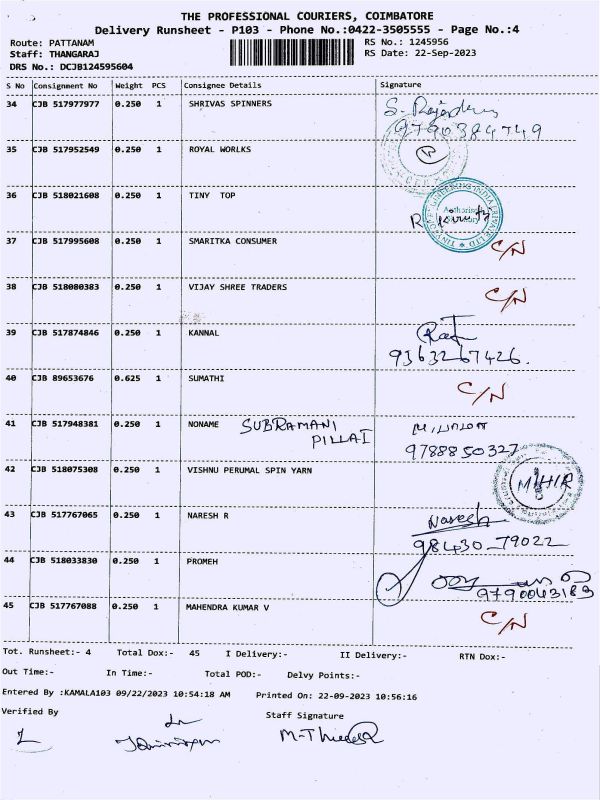 THE PROFESSIONAL COURIERS, COIMBATORE
Delivery Runsheet - P103 - Phone No.:0422-3505555 - Page No.:4
Route: PATTANAM RS No.: 1245956
Staff: THANGARAJ RS Date: 22-Sep-2023
DRS No.: DCJB124595604
S No Consignment No Weight PCS Consignee Details Signature
34 CJB 517977977 0.250 1 SHRIVAS SPINNERS
9790384749
35 CJB 517952549 0.250 1 ROYAL WORLKS
36 CJB 518021608 0.250 1 TINY TOP
37 CJB 517995608 0.250 1 SMARITKA CONSUMER C/N
38 CJB 518080383 0.250 1 VIJAY SHREE TRADERS C/N
39 CJB 517874846 0.250 1 KANNAL
9363267426.
40 CJB 89653676 0.625 1 SUMATHI C/N
41 CJB 517948381 0.250 1 NONAME SUBRAMANI
PILLAI
9788850327
42 CJB 518075308 0.250 1 VISHNU PERUMAL SPIN YARN MIHIR
43 CJB 517767065 0.250 1 NARESH R Naresh
98430-79022
44 CJB 518033830 0.250 1 PROMEH
9790043183
45 CJB 517767088 0.250 1 MAHENDRA KUMAR V C/N
Tot. Runsheet:- 4 Total Dox:- 45 I Delivery:- II Delivery:- RTN Dox:-
Out Time:- In Time:- Total POD:- Delvy Points:-
Entered By :KAMALA103 09/22/2023 10:54:18 AM Printed On: 22-09-2023 10:56:16
Verified By Staff Signature